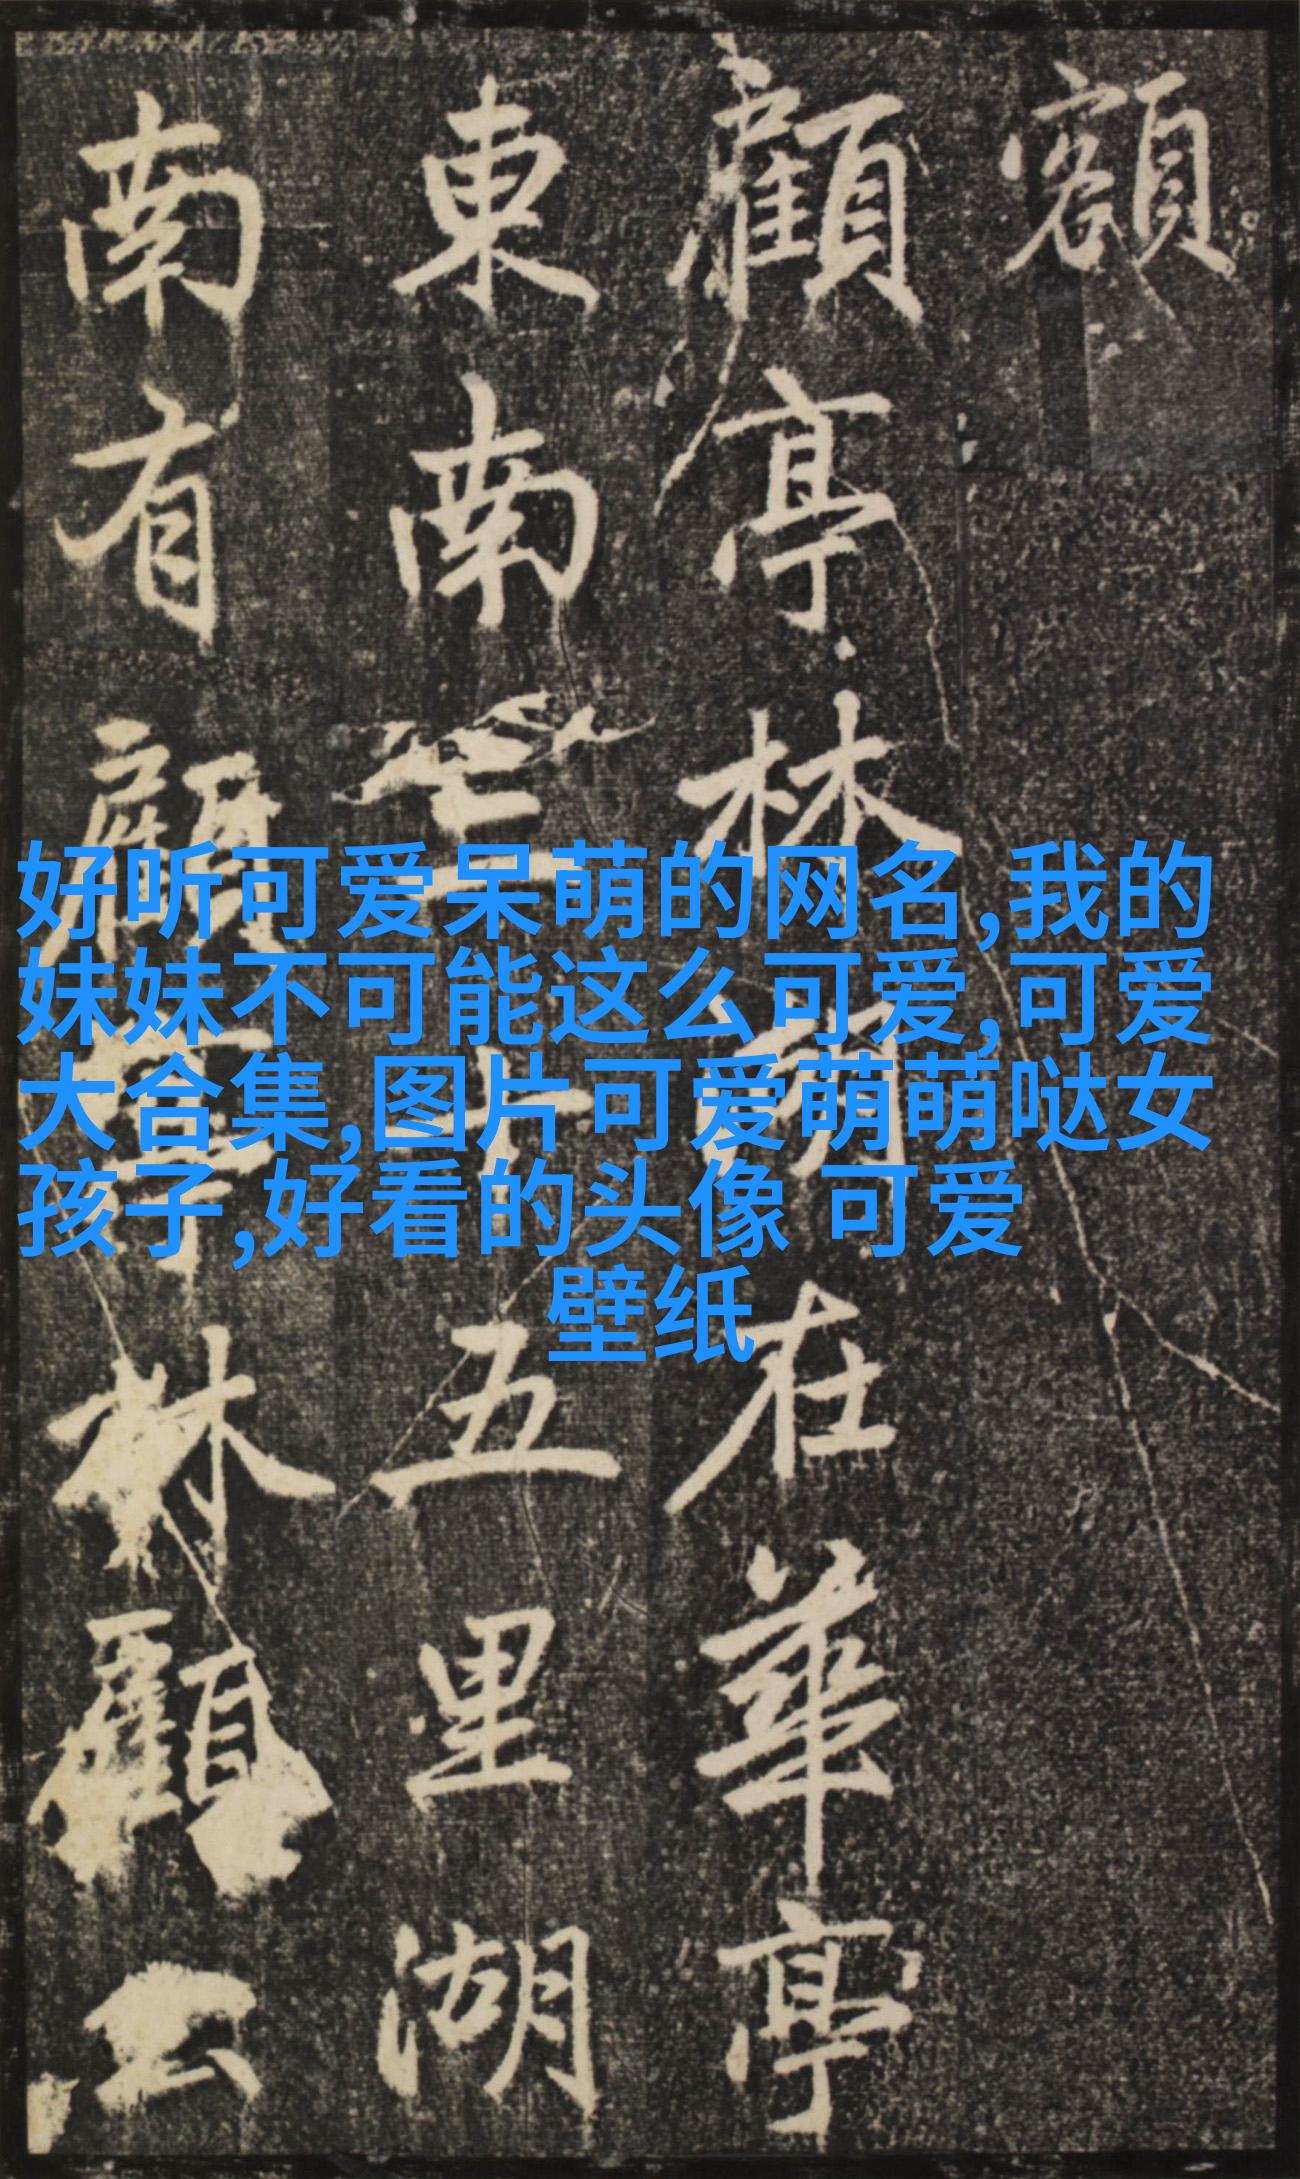 額
顧亭林湖在華亭
東南三十五里湖
南有顧亭林顧公
好听可爱呆萌的网名,我的
妹妹不可能这么可爱,可爱
大合集,图片可爱萌萌哒女
孩子,好看的头像 可爱
壁纸